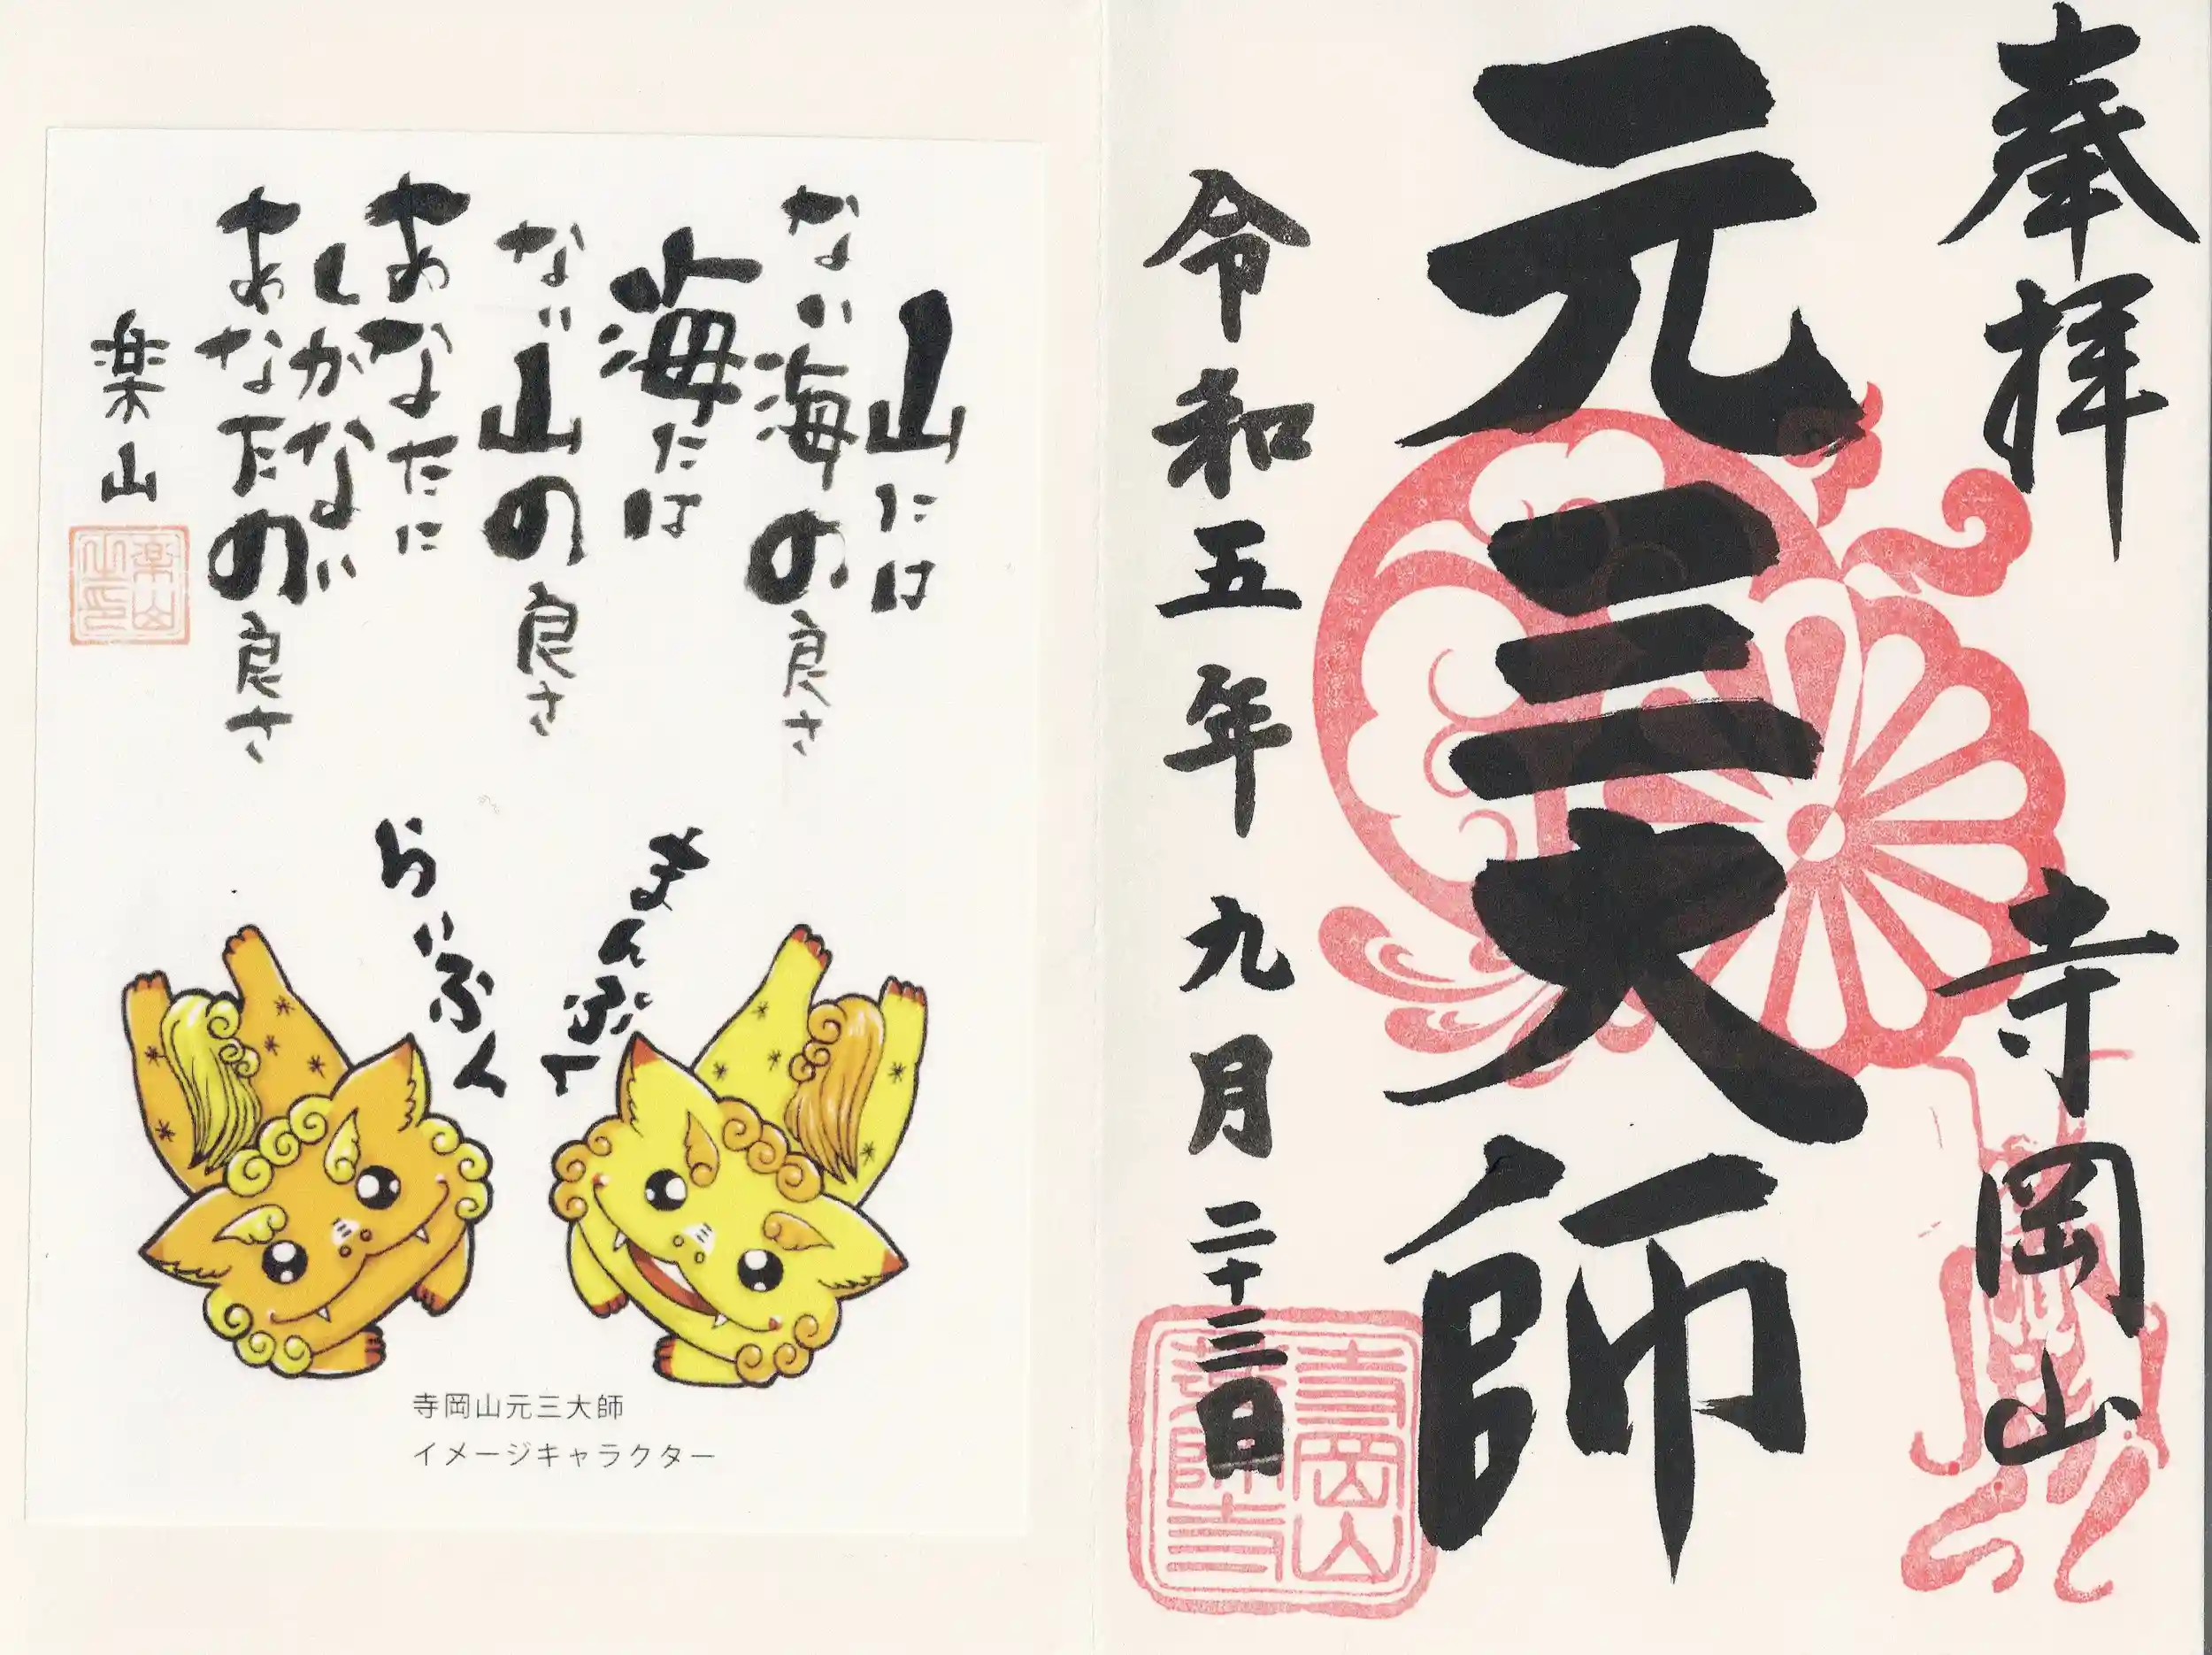 奉拝
寺岡山
元三大師
令和五年九月二十三日
寺岡山
薬師寺
山には
ない海の良さ
海には
ない山の良さ
あなたに
しかない
あなたの良さ
楽山
楽山
之印
まんぷく
らいふく
寺岡山元三大師
イメージキャラクター